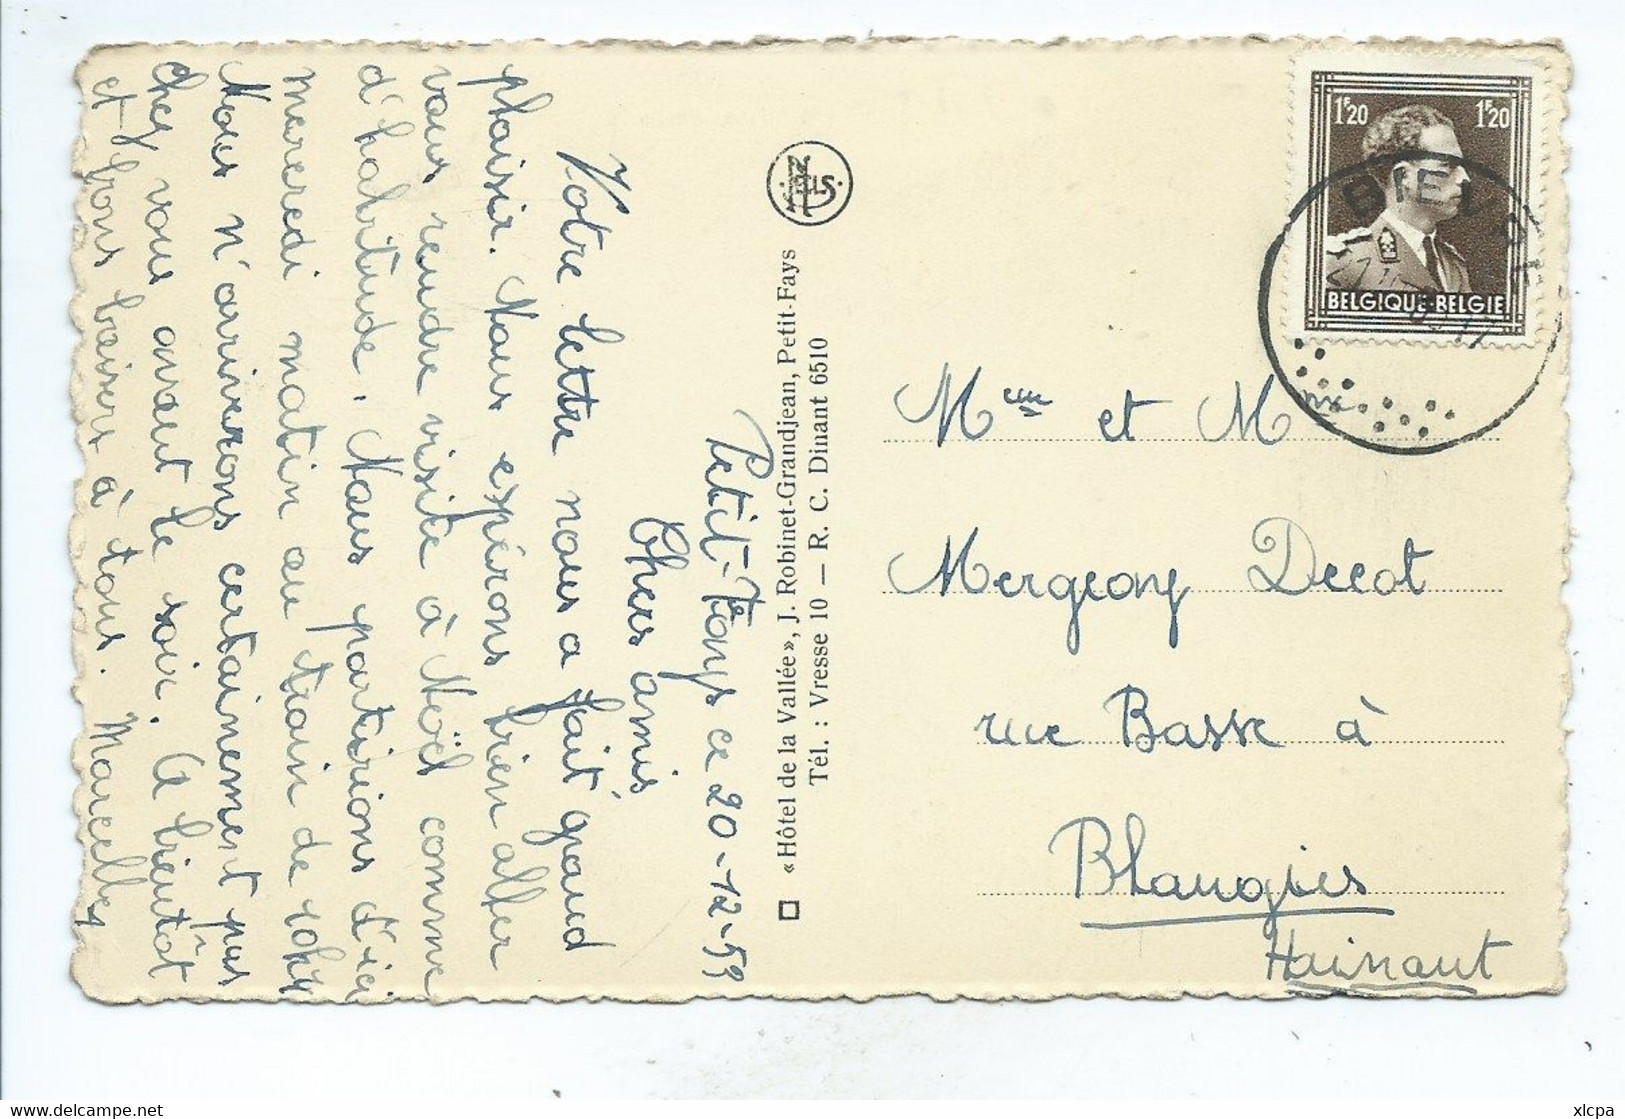 Petit-Fays ce 20-12-53
Chers amis
Votre lettre nous a fait grand
plaisir. Nous espérons bien aller
vous rendre visite à Noël comme
d'habitude. Nous partirions d'ici
mercredi matin au train de 10h
Nous n'arriverons certainement pas
chez vous avant le soir. A bientôt
et bons baisers à tous. Marcelle
NELS
« Hôtel de la Vallée », J. Robinet-Grandjean, Petit-Fays
Tél. : Vresse 10 — R. C. Dinant 6510
1F20 1F20
BELGIQUE-BELGIE
Mme et M
Mergeay Decot
rue Basse à
Blaugies
Hainaut
xlcpa